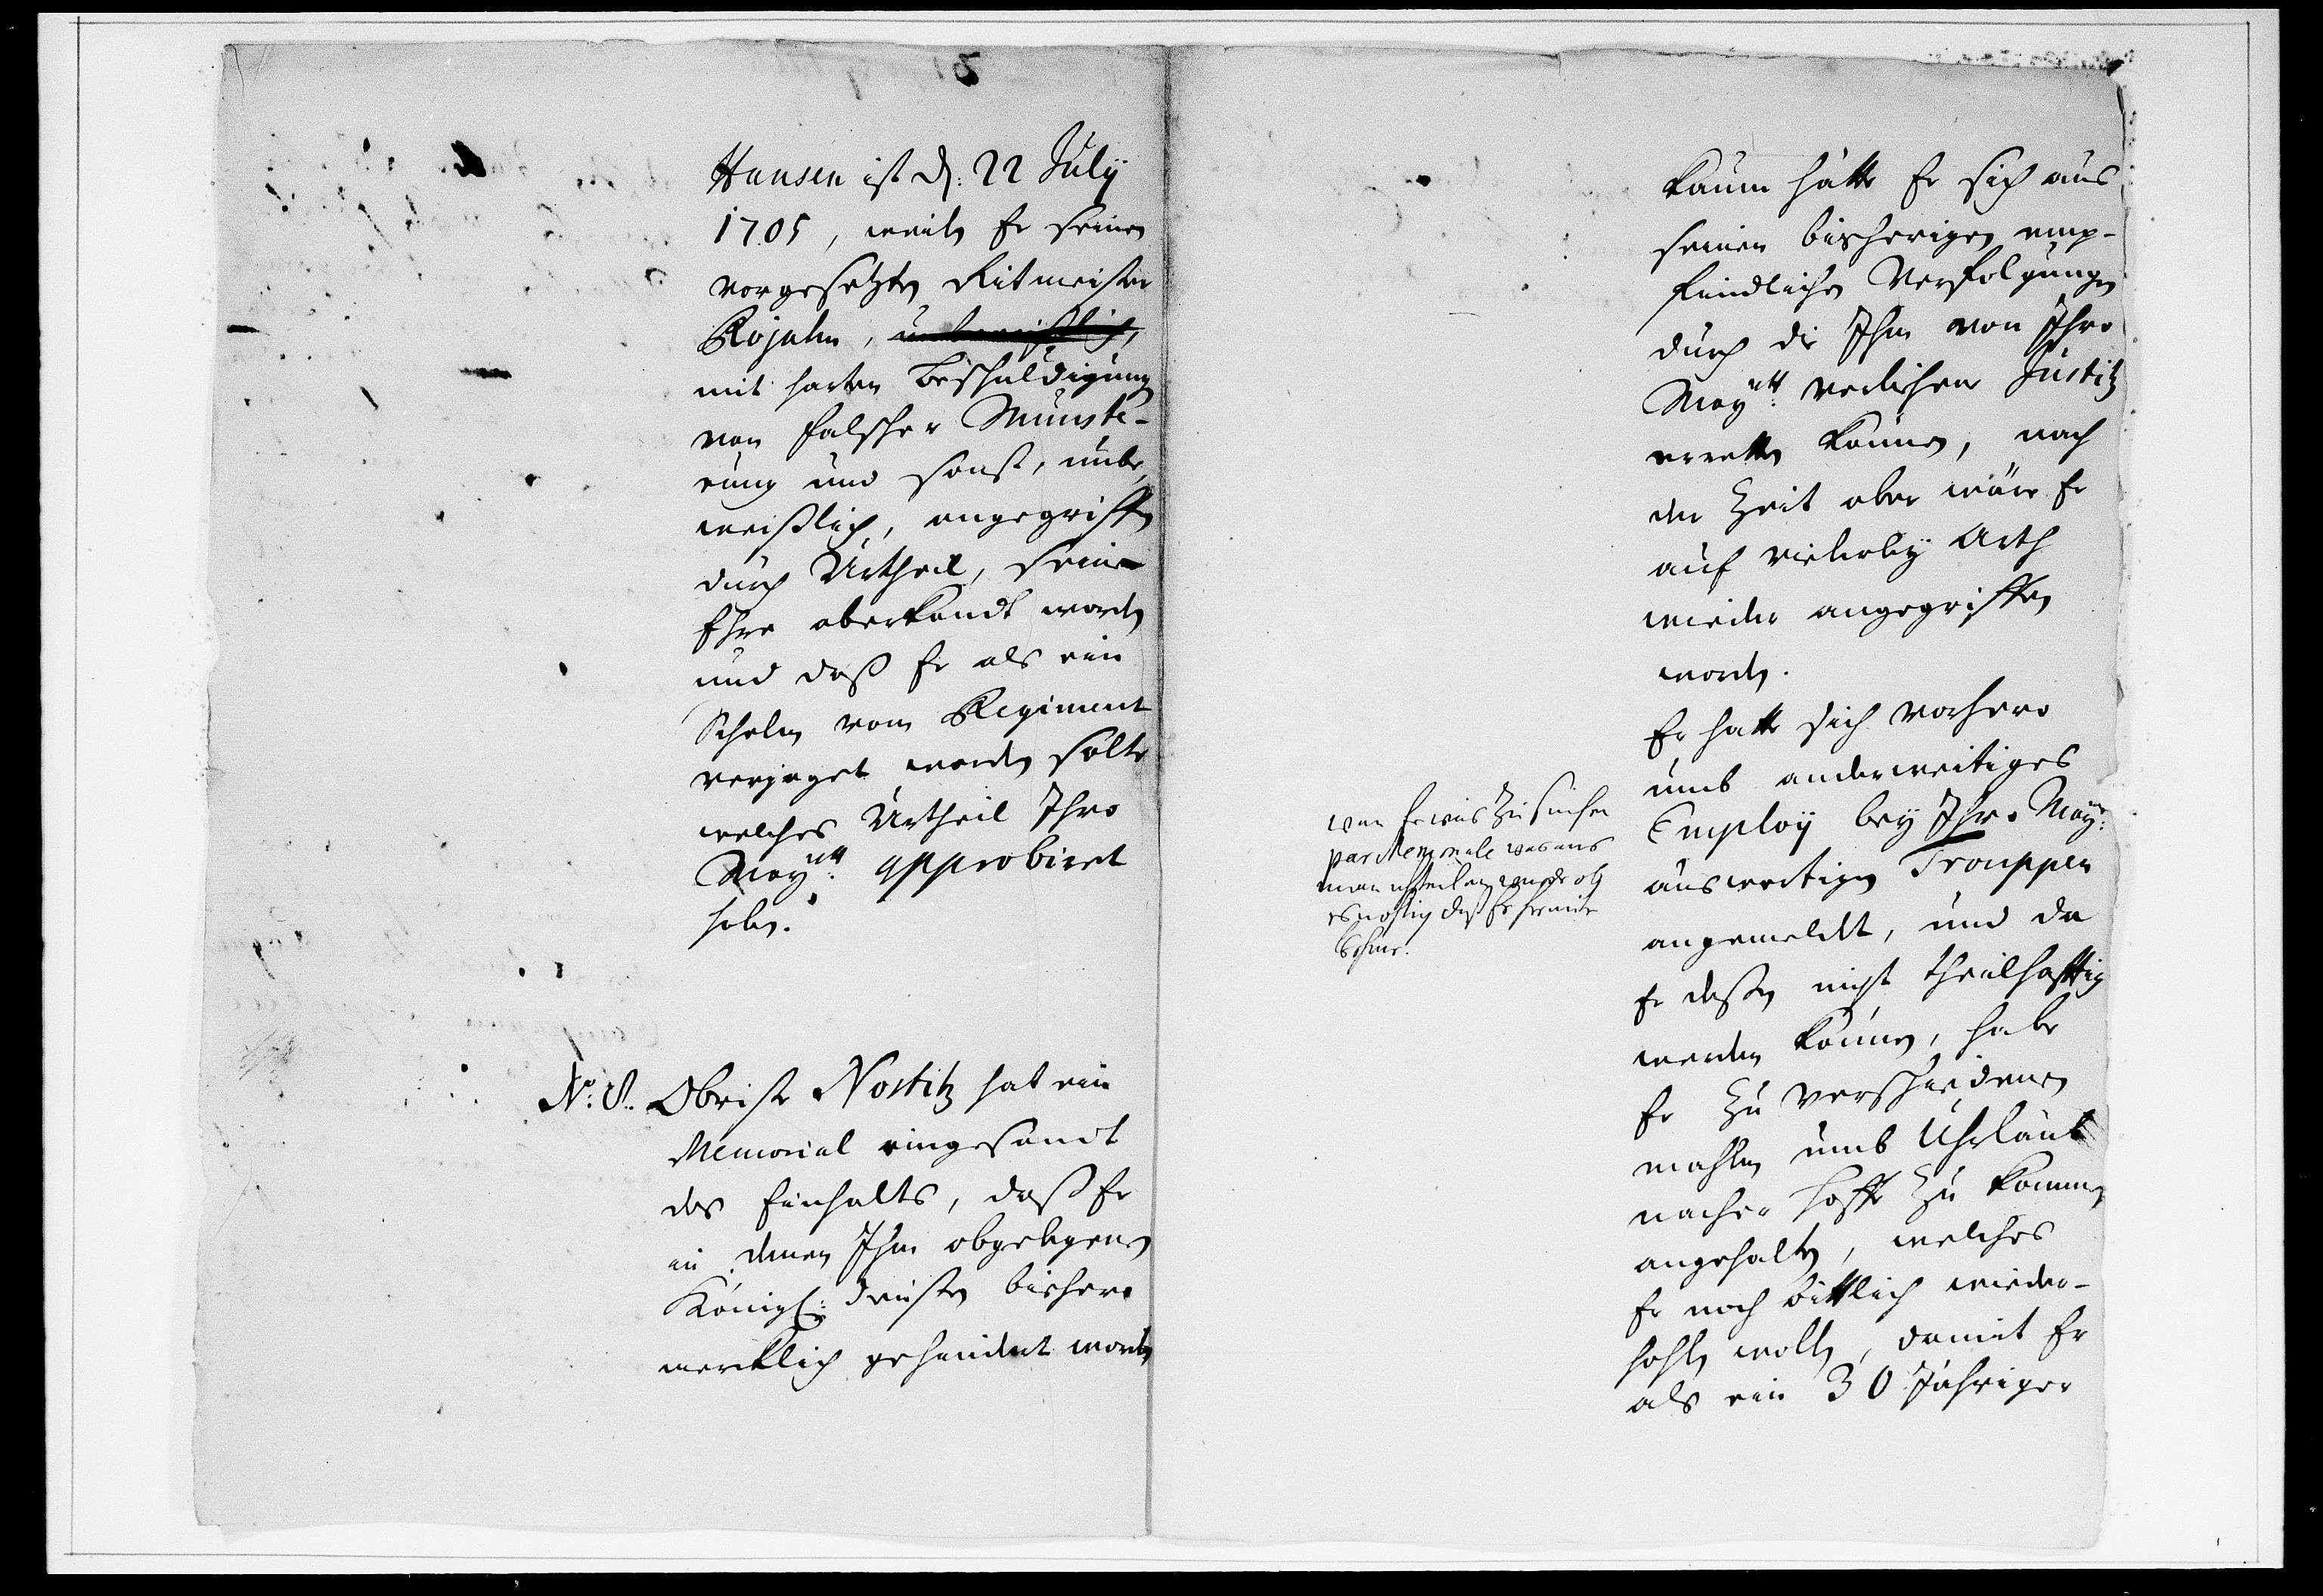 Hansen ist d: 22 July
1705, weiln Er seinen
vorgesetzten Ritmeister
Rojahn, unbeweißlich,
mit harten Beschuldigung
von falscher Munste-
rung und sonst, unbe
weißlich, angegriffen
durch Urtheil, seine
Ehre aberkandt worden
und daß Er als ein
Schelm vom Regiment
verjaget werden solte
welches Urtheil Ihro
Maytt: approbiret
haben.
No: 8. Obrister Nostitz hat ein
Memorial eingesandt
des Einhalts, daß Er
in denen Ihm obgelegenen
Königl: diensten bishero
mercklich gehindert worden
kaum hätte Er sich aus
seinen bisherigen emp-
findlichen Verfolgungen
durch die Ihm von Ihro
Maytt: verliehene Justitz
erretten können, nach
der Zeit aber wäre Er
auf vielerley Arth
wieder angegriffen
worden.
Er hatte sich vorhero
umb anderweitiges
Employ bey Ihro May:
auswertigen Trouppen
angemeldt, und da
Er deßen nicht theilhafftig
werden können, habe
Er zu verschiedenen
mahlen umb Uhrlaub
nacher Hoffe zu kommen
angehalten, welches
Er noch bittlich wieder-
hohlen wollen, damit Er
als ein 30 Jähriger
wan Er was zu suchen
par Memoriale woraus
man urteilen wurde ob
es nohtig daß Er hernider
kohme.